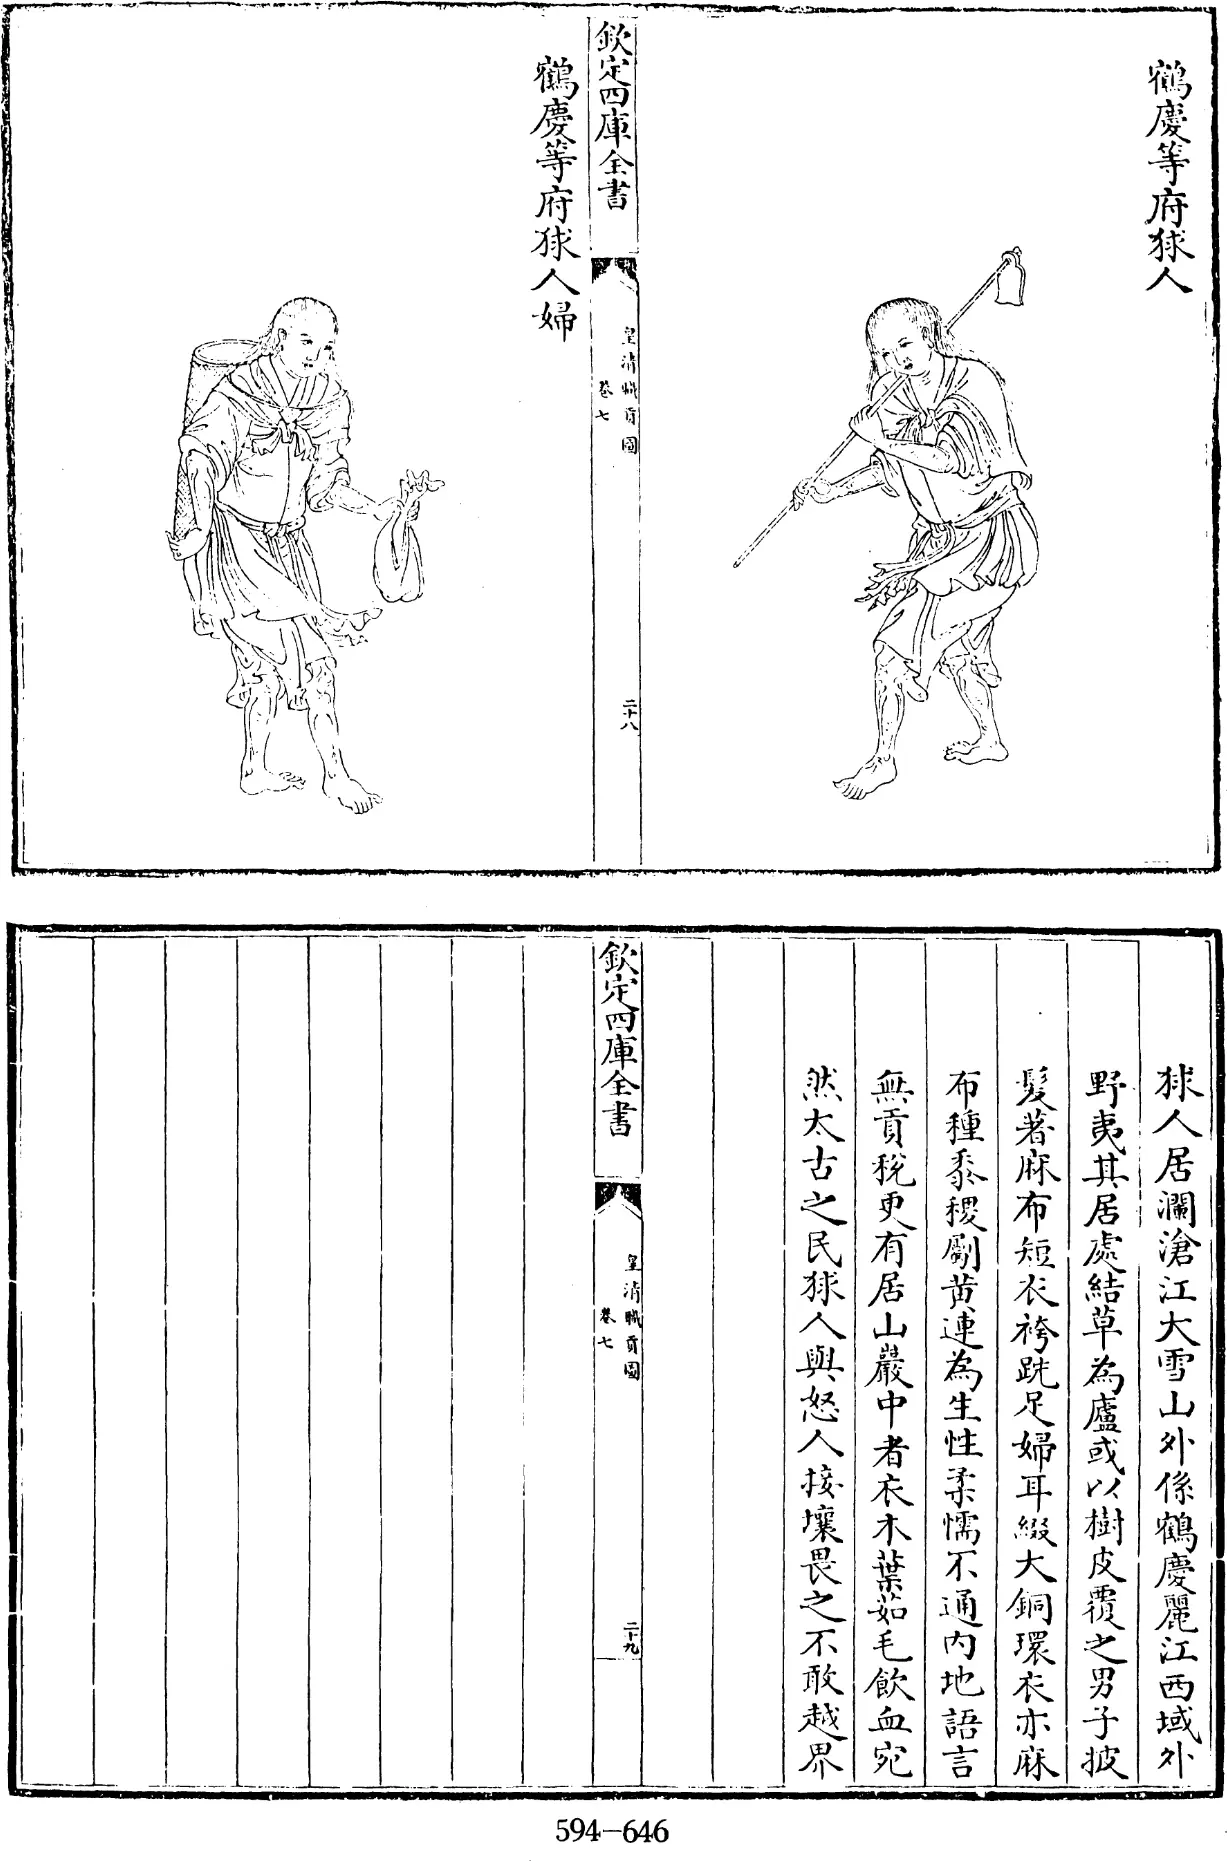 鶴慶等府狇人
欽定四庫全書
皇清職貢圖
卷七
二十八
鶴慶等府狇人婦
狇人居瀾滄江大雪山外係鶴慶麗江西域外
野夷其居處結草為廬或以樹皮覆之男子披
髮著麻布短衣袴跣足婦耳綴大銅環衣亦麻
布種黍稷劚黄連為生性柔懦不通内地語言
無貢稅更有居山巖中者衣木葉茹毛飲血宛
然太古之民狇人與怒人接壤畏之不敢越界
欽定四庫全書
皇清職貢圖
卷七
二十九
594-646